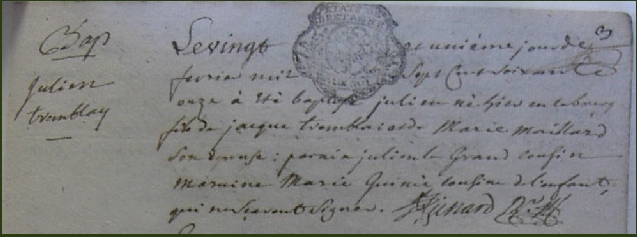 Bap
julien
tremblay
3
Le vingt et unième jour de
fevrier mil Sept Cent Soixante
onze à été baptisé julien né hier en ce bourg
fils de jacque tremblai et de Marie Maillard
Son epouse : parain julien le Grand cousin
maraine Marie Guinie cousine de l'enfant,
qui ne sçavent signer.